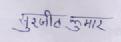 सुरजीत कुमार